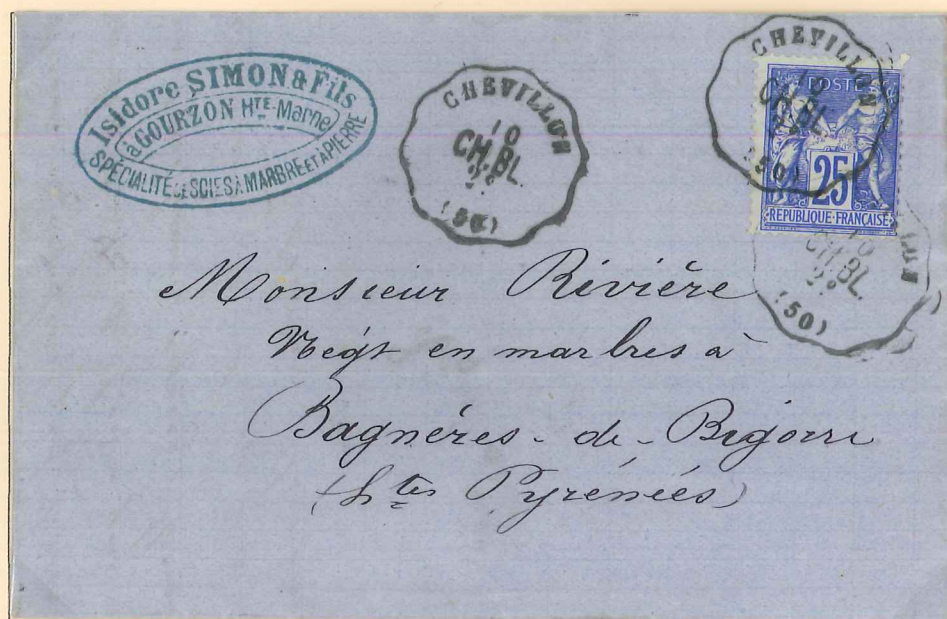 Isidore SIMON & Fils
à GOURZON Hte-Marne
SPÉCIALITÉ DE SCIES À MARBRE ET À PIERRE
CHEVILLON
10
CH.BL.
2°
(50)
CHEVILLON
10
CH.BL.
(50)
POSTE
25
REPUBLIQUE FRANÇAISE
10
CH.BL.
2°
(50)
Monsieur Rivière
Négt en marbres à
Bagnéres-de-Bigorre
(htes Pyrénéés)